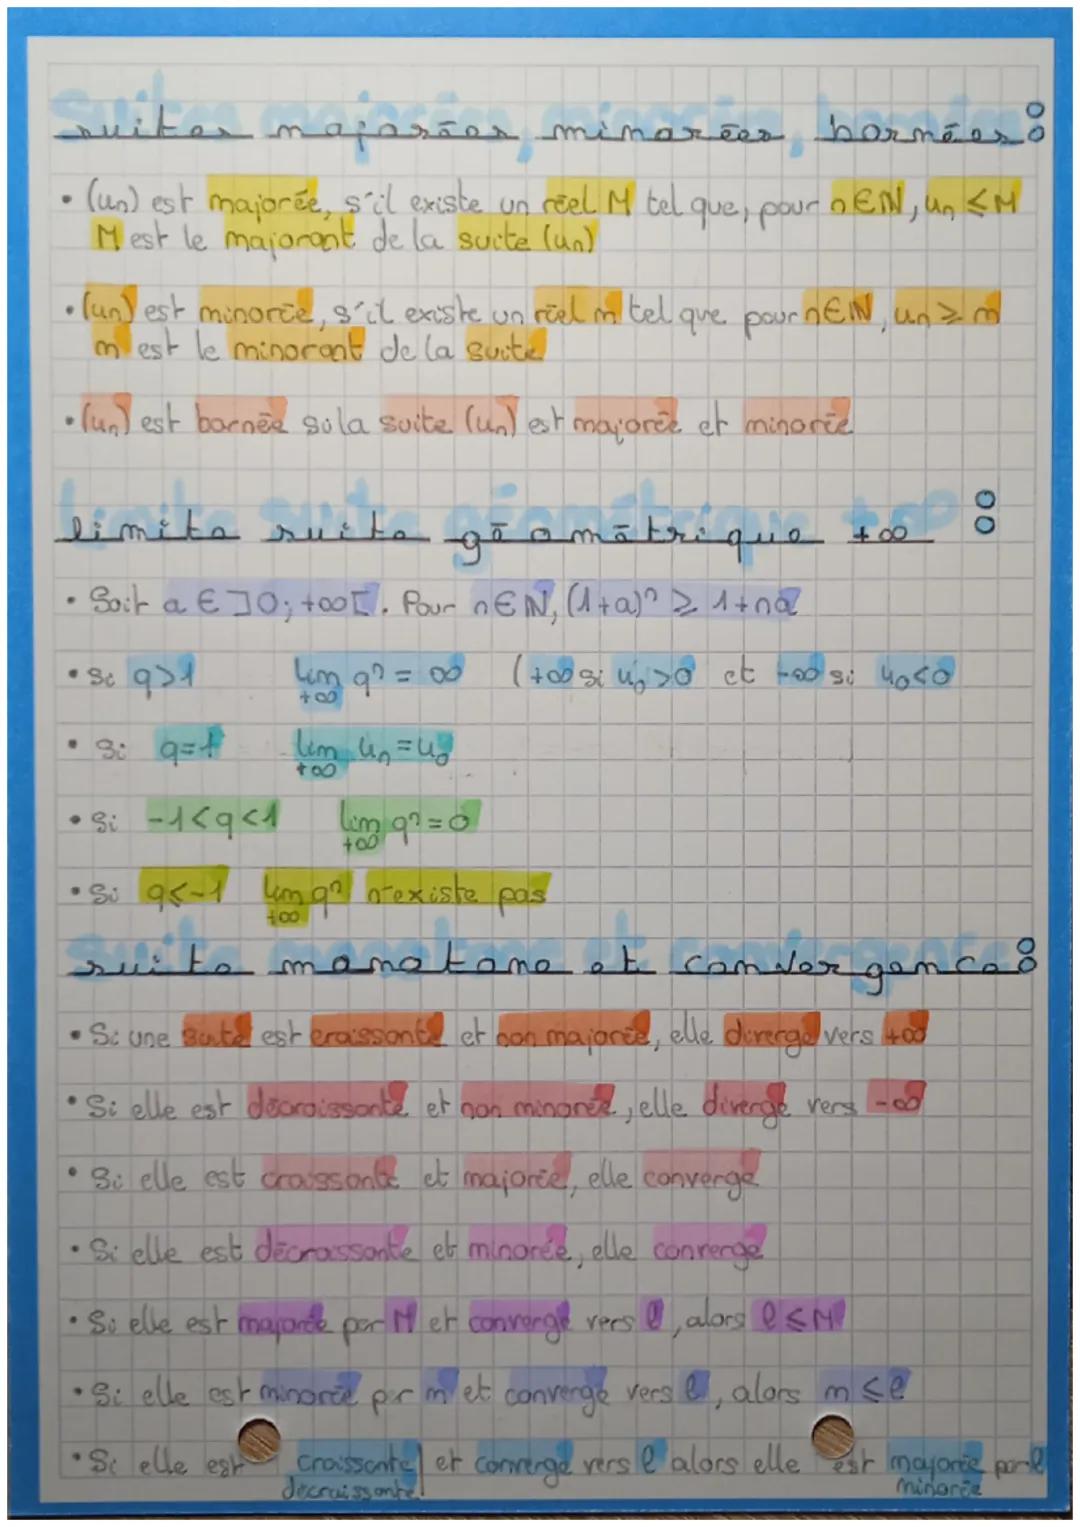 Suites majorées, minorées, bornées :
• (un) est majorée, s'il existe un réel M tel que, pour n∈ℕ, un ≤ M
M est le majorant de la suite (un)
• (un) est minorée, s'il existe un réel m tel que pour n∈ℕ, un ≥ m
m est le minorant de la suite
• (un) est bornée si la suite (un) est majorée et minorée
limite suite géométrique +∞ :
• Soit a ∈ ]0; +∞[. Pour n∈ℕ, (1+a)ⁿ ≥ 1+na
• Si q>1 lim qⁿ = ∞ (+∞ si u₀>0 et -∞ si u₀<0
+∞
• Si q=1 lim un = u₀
+∞
• Si -1<q<1 lim qⁿ = 0
+∞
• Si q≤-1 lim qⁿ n'existe pas
+∞
suite monotone et convergence :
• Si une suite est croissante et non majorée, elle diverge vers +∞
• Si elle est décroissante et non minorée, elle diverge vers -∞
• Si elle est croissante et majorée, elle converge
• Si elle est décroissante et minorée, elle converge
• Si elle est majorée par M et converge vers l, alors l ≤ M
• Si elle est minorée par m et converge vers l, alors m ≤ l
• Si elle est croissante et converge vers l alors elle est majorée par l
décroissante minorée